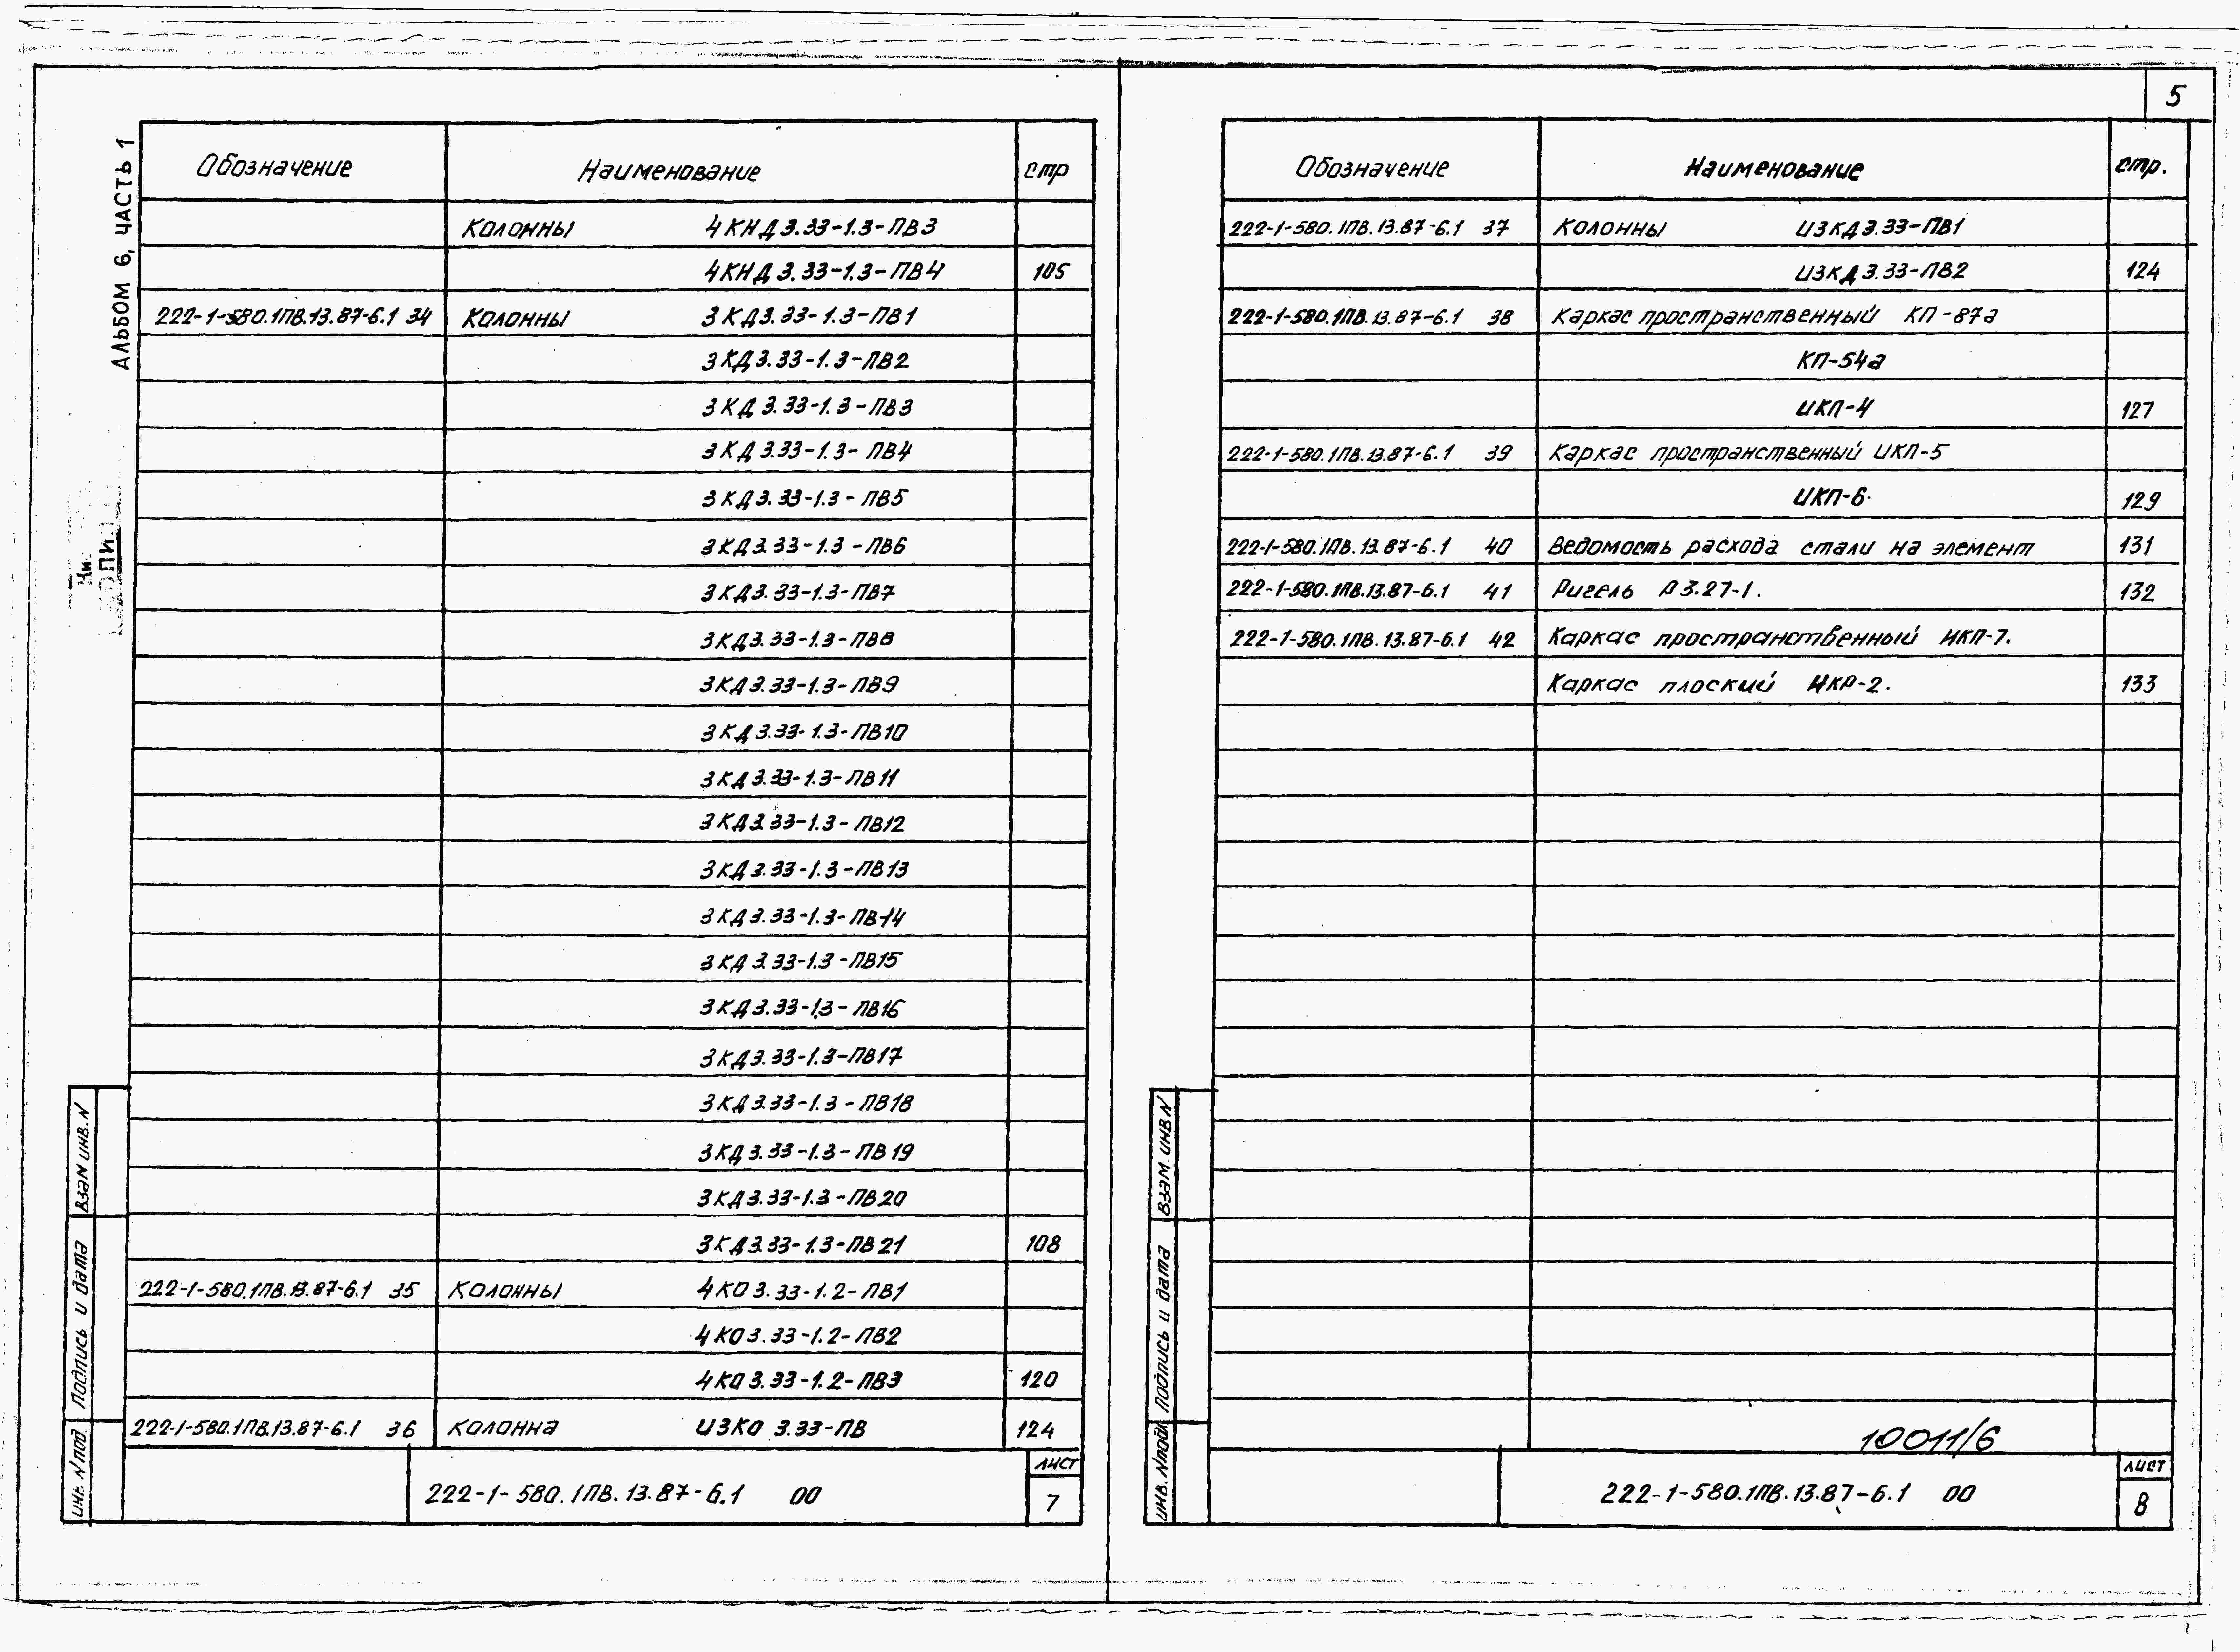 5
АЛЬБОМ 6, ЧАСТЬ 1
Обозначение Наименование стр
Колонны 4КНД3.33-1.3-ПВ3
4КНД3.33-1.3-ПВ4 105
222-1-580.1ПВ.13.87-6.1 34 Колонны 3КД3.33-1.3-ПВ1
3КД3.33-1.3-ПВ2
3КД3.33-1.3-ПВ3
3КД3.33-1.3-ПВ4
3КД3.33-1.3-ПВ5
3КД3.33-1.3-ПВ6
3КД3.33-1.3-ПВ7
3КД3.33-1.3-ПВ8
3КД3.33-1.3-ПВ9
3КД3.33-1.3-ПВ10
3КД3.33-1.3-ПВ11
3КД3.33-1.3-ПВ12
3КД3.33-1.3-ПВ13
3КД3.33-1.3-ПВ14
3КД3.33-1.3-ПВ15
3КД3.33-1.3-ПВ16
3КД3.33-1.3-ПВ17
3КД3.33-1.3-ПВ18
3КД3.33-1.3-ПВ19
3КД3.33-1.3-ПВ20
3КД3.33-1.3-ПВ21 108
222-1-580.1ПВ.13.87-6.1 35 Колонны 4КО3.33-1.2-ПВ1
4КО3.33-1.2-ПВ2
4КО3.33-1.2-ПВ3 120
222-1-580.1ПВ.13.87-6.1 36 Колонна И3КО 3.33-ПВ 124
Взам инв. N
Подпись и дата
Инв. N под.
222-1-580.1ПВ.13.87-6.1 00
лист
7
Обозначение Наименование стр.
222-1-580.1ПВ.13.87-6.1 37 Колонны И3КД3.33-ПВ1
И3КД3.33-ПВ2 124
222-1-580.1ПВ.13.87-6.1 38 Каркас пространственный КП-87а
КП-54а
ИКП-4 127
222-1-580.1ПВ.13.87-6.1 39 Каркас пространственный ИКП-5
ИКП-6. 129
222-1-580.1ПВ.13.87-6.1 40 Ведомость расхода стали на элемент 131
222-1-580.1ПВ.13.87-6.1 41 Ригель Р3.27-1. 132
222-1-580.1ПВ.13.87-6.1 42 Каркас пространственный ИКП-7.
Каркас плоский ИКР-2. 133
Взам. инв N
Подпись и дата
Инв. N подл
10011/6
222-1-580.1ПВ.13.87-6.1 00
лист
8